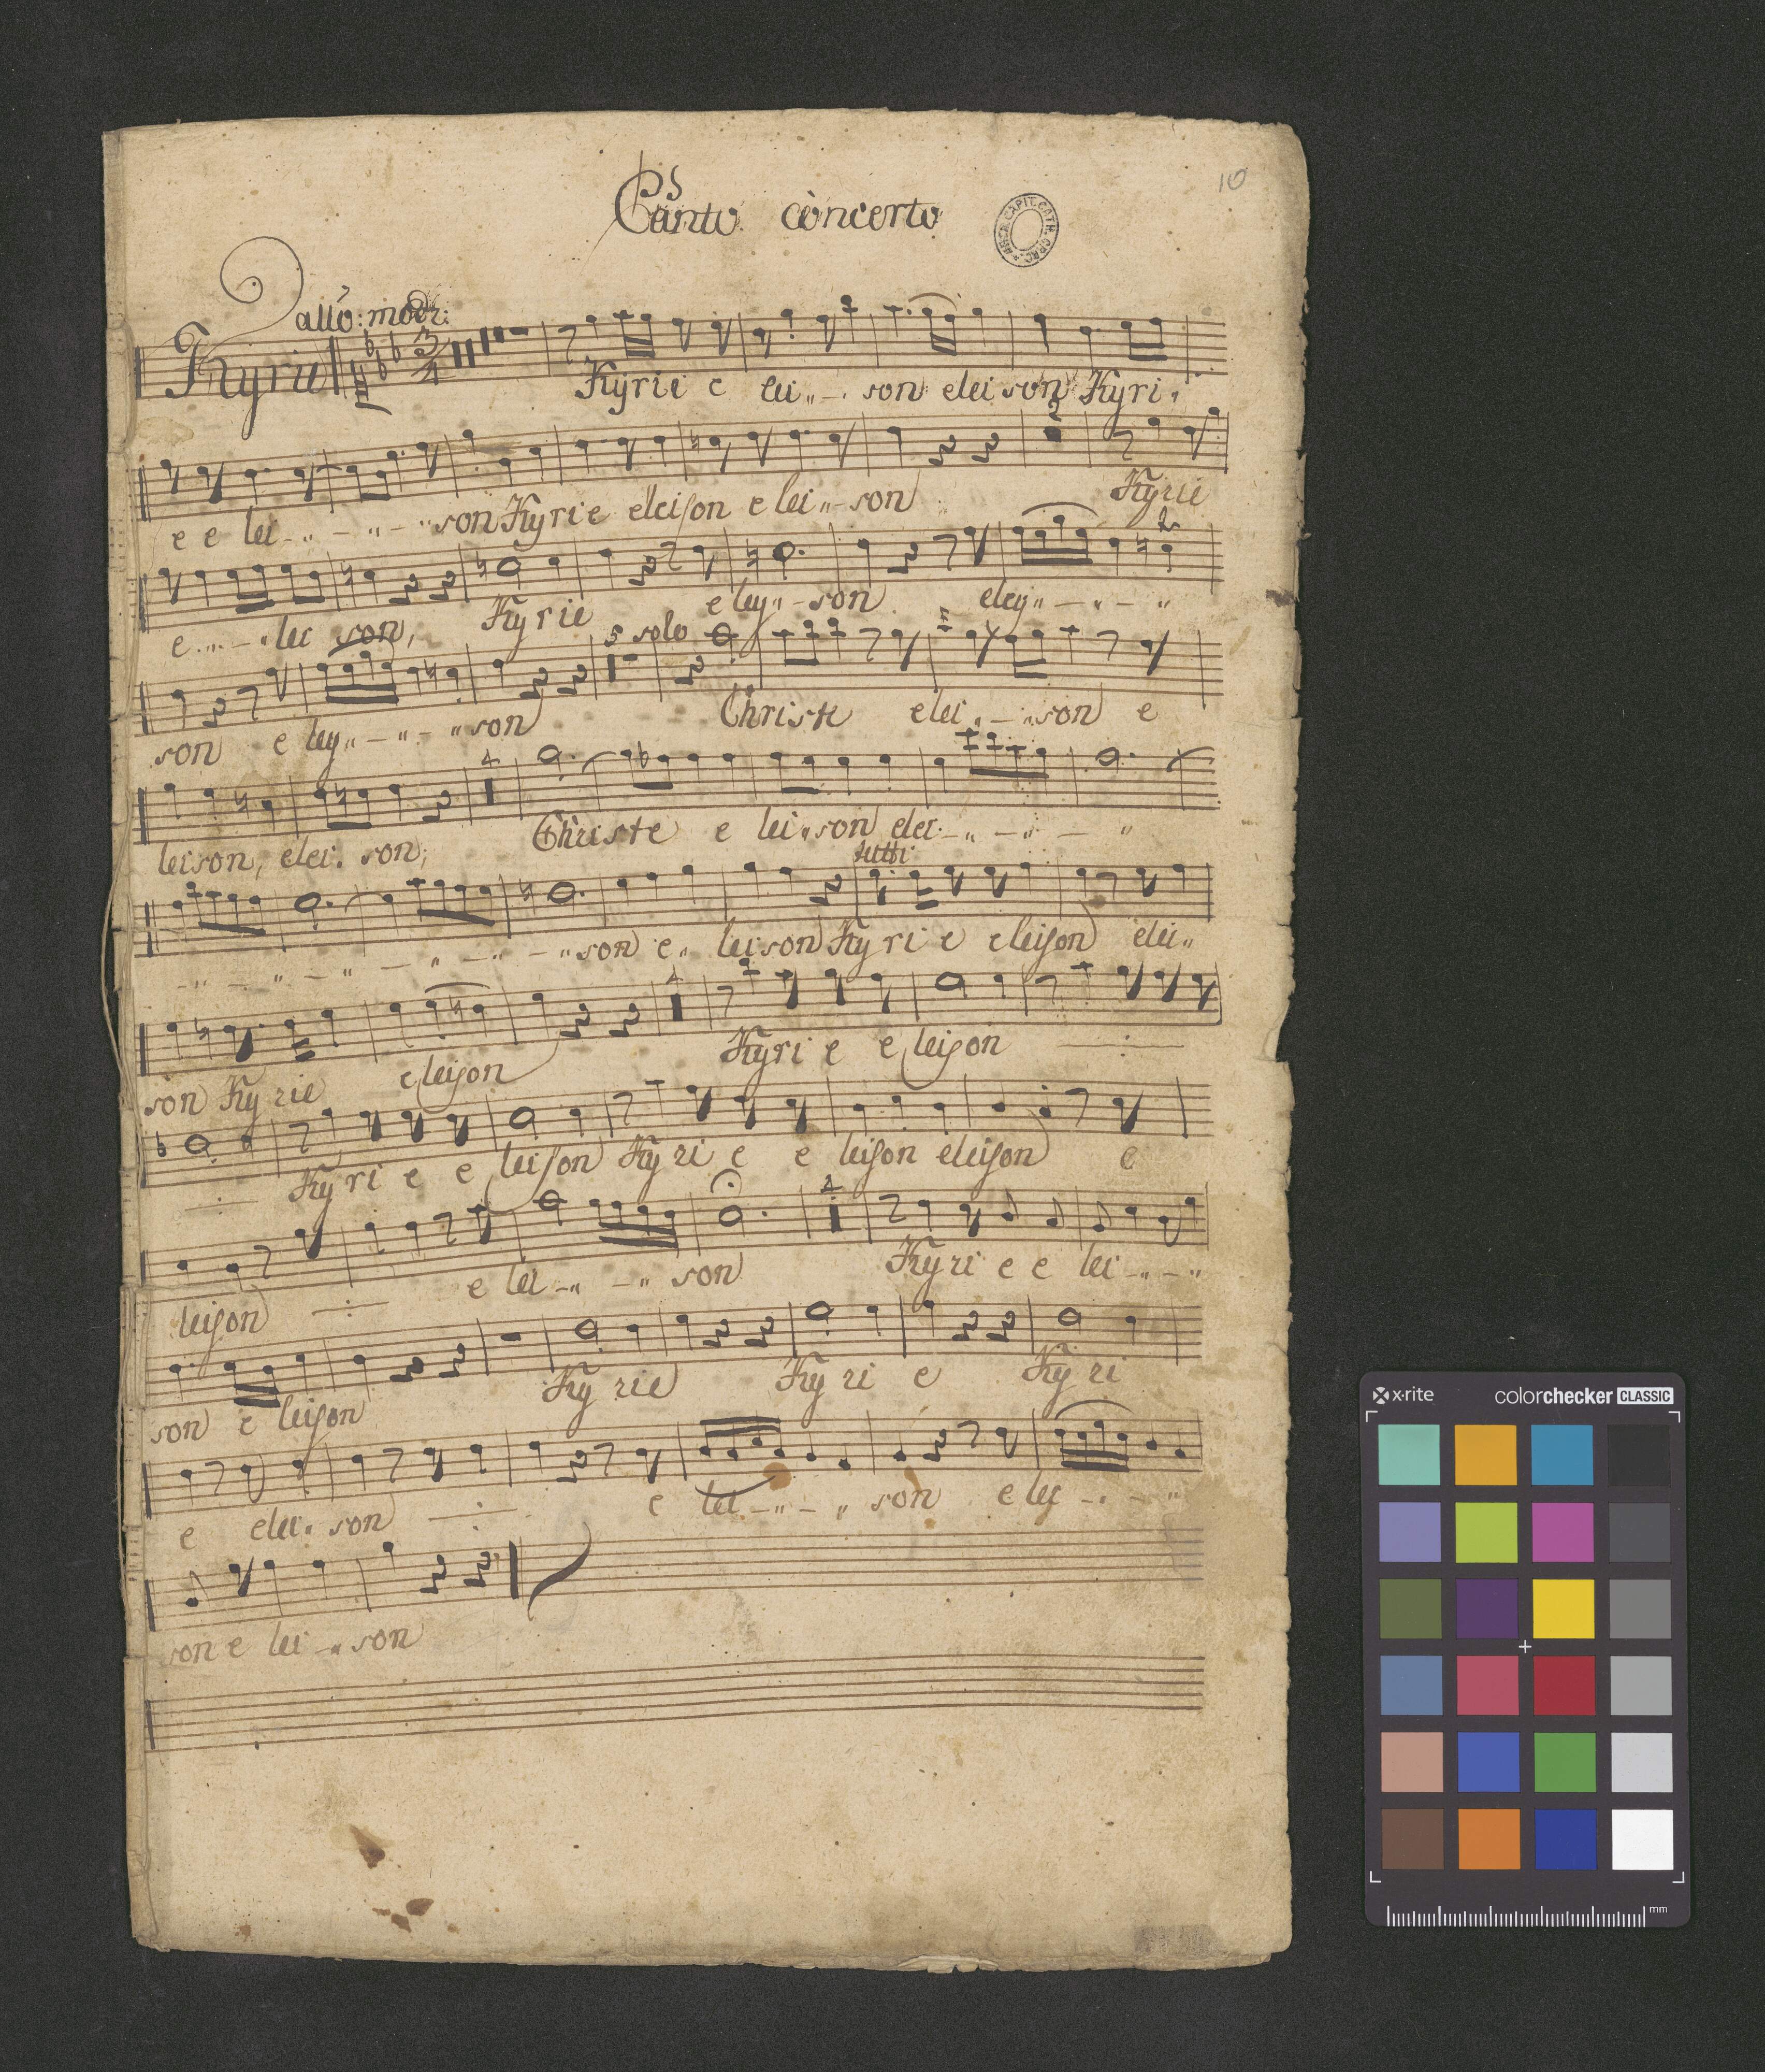 10
Canto concerto
ARCH. CAPIT. CATH. CRAC.
allo: moder:
Kyrie
3/4
Kyrie e lei „ - . son eleison Kyri „
e e lei - „ - „ - „ son Kyrie eleison e lei „ - son Kyrie
2
e . „ . - „ lei son, Kyrie e ley „ - son eley „ - „ - „
5 solo
son e ley „ - „ - „ son Christe elei „ - „ son e
4
leison, elei . son, Christe e lei „ son elei . - „ - „ - „
tutti
- „ - „ - „ - „ - „ - „ son e „ leison Kyri e eleison elei „
son Kyrie eleison Kyri e e leison - : -
- : - Kyri e e leison Kyri e e leison eleison e
leison - : - e lei - „ - „ son Kyri e e lei - „ - „
son e leison Kyrie Kyri e Kyri
e elei . son - : - e lei - „ - „ son e lei - . - „
son e lei - „ son
x·rite
colorchecker CLASSIC
mm